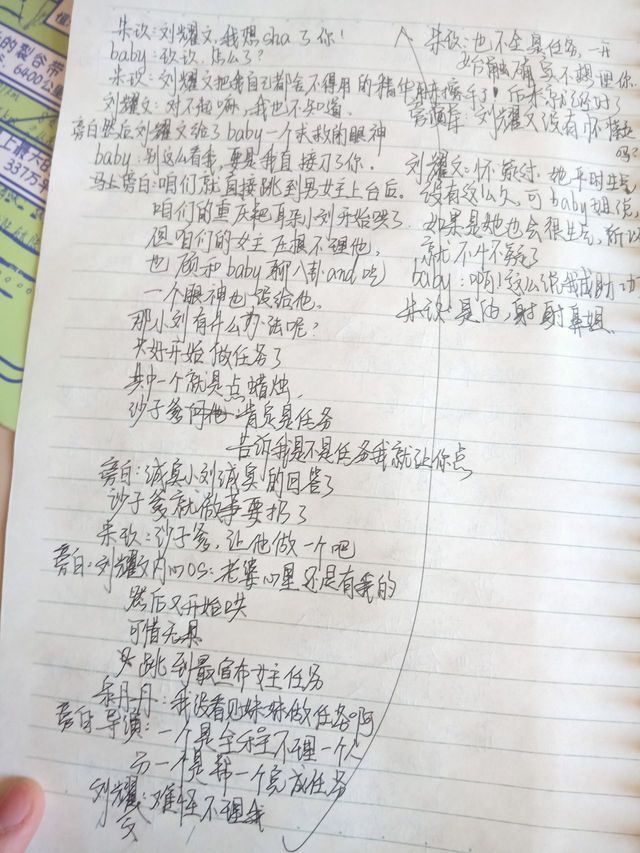 的裂谷带
6400公里
上最大的
337万平
朱玖:刘耀文,我想sha了你!
baby:玖玖,怎么了?
朱玖:刘耀文把我自己都舍不得用的精华用来擦手了!
刘耀文:对不起嘛,我也不知道.
旁白:然后刘耀文给了baby一个求救的眼神
baby:别这么看我,要是我直接刀了你.
马上旁白:咱们就直接跳到男女主上台后.
咱们的重庆耙耳朵小刘开始哄了.
但咱们的女主压根不理他,
也顾和baby聊八卦and吃
一个眼神也没给他.
那小刘有什么办法呢?
只好开始做任务了
其中一个就是点蜡烛.
沙子爹问他 肯定是任务
告诉我是不是任务我就让你点
旁白:诚实小刘诚实的回答了
沙子爹就做事要扔了
朱玖:沙子爹,让他做一个吧
旁白:刘耀文内心OS:老婆心里还是有我的
然后又开始哄
可惜无果
跳到最宣布女主任务
乔丹丹:我没看见妹妹做任务啊
旁白 导演:一个是全程不理一个人
另一个是帮一个完成任务
刘耀文:难怪不理我
朱玖:也不全是任务,开
始确实不想理你.
后来就还好了
导演:刘耀文没有怀疑
吗?
刘耀文:怀疑过,她平时生气
没有这么久,可baby姐说
如果是她也会很生气,所以
就不怀疑了
baby:啊!这么说我成助攻
朱玖:是的,谢谢姐